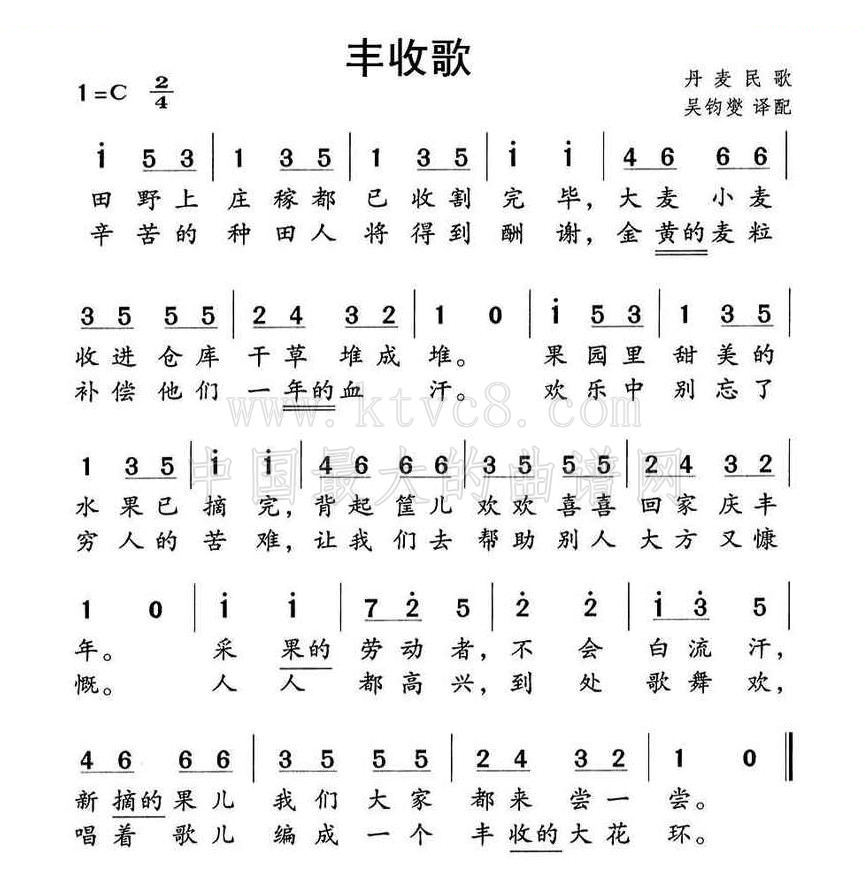 丰收歌
1=C 2/4
丹麦民歌
吴钧燮 译配
i 5 3 | 1 3 5 | 1 3 5 | i i | 4 6 6 6 |
田野上庄稼都已收割完毕,大麦小麦
辛苦的种田人将得到酬谢,金黄的麦粒
3 5 5 5 | 2 4 3 2 | 1 0 | i 5 3 | 1 3 5 |
收进仓库干草堆成堆。 果园里甜美的
补偿他们一年的血汗。 欢乐中别忘了
www.ktvc8.com
中国最大的曲谱网
1 3 5 | i i | 4 6 6 6 | 3 5 5 5 | 2 4 3 2 |
水果已摘完,背起筐儿欢欢喜喜回家庆丰
穷人的苦难,让我们去帮助别人大方又慷
1 0 | i i | 7 2̇ 5 | 2̇ 2̇ | i 3̇ 5 |
年。 采果的劳动者,不会白流汗,
慨。 人人都高兴,到处歌舞欢,
4 6 6 6 | 3 5 5 5 | 2 4 3 2 | 1 0 ‖
新摘的果儿我们大家都来尝一尝。
唱着歌儿编成一个丰收的大花环。